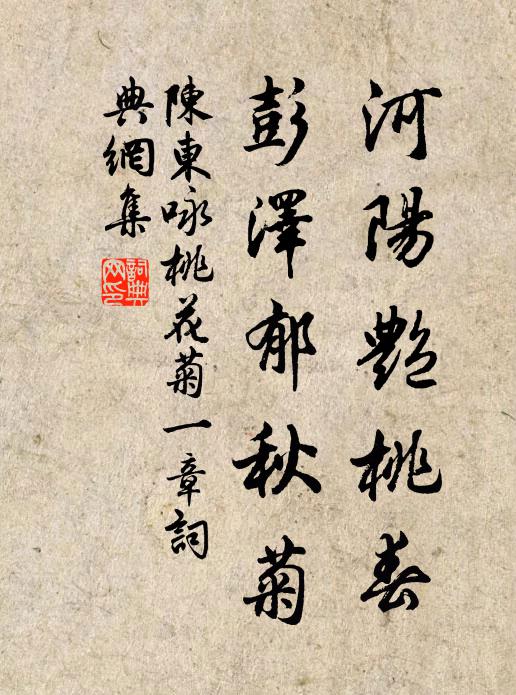 河陽艷桃春
彭澤郁秋菊
陳東咏桃花菊一章詞
典網集
詞典網印